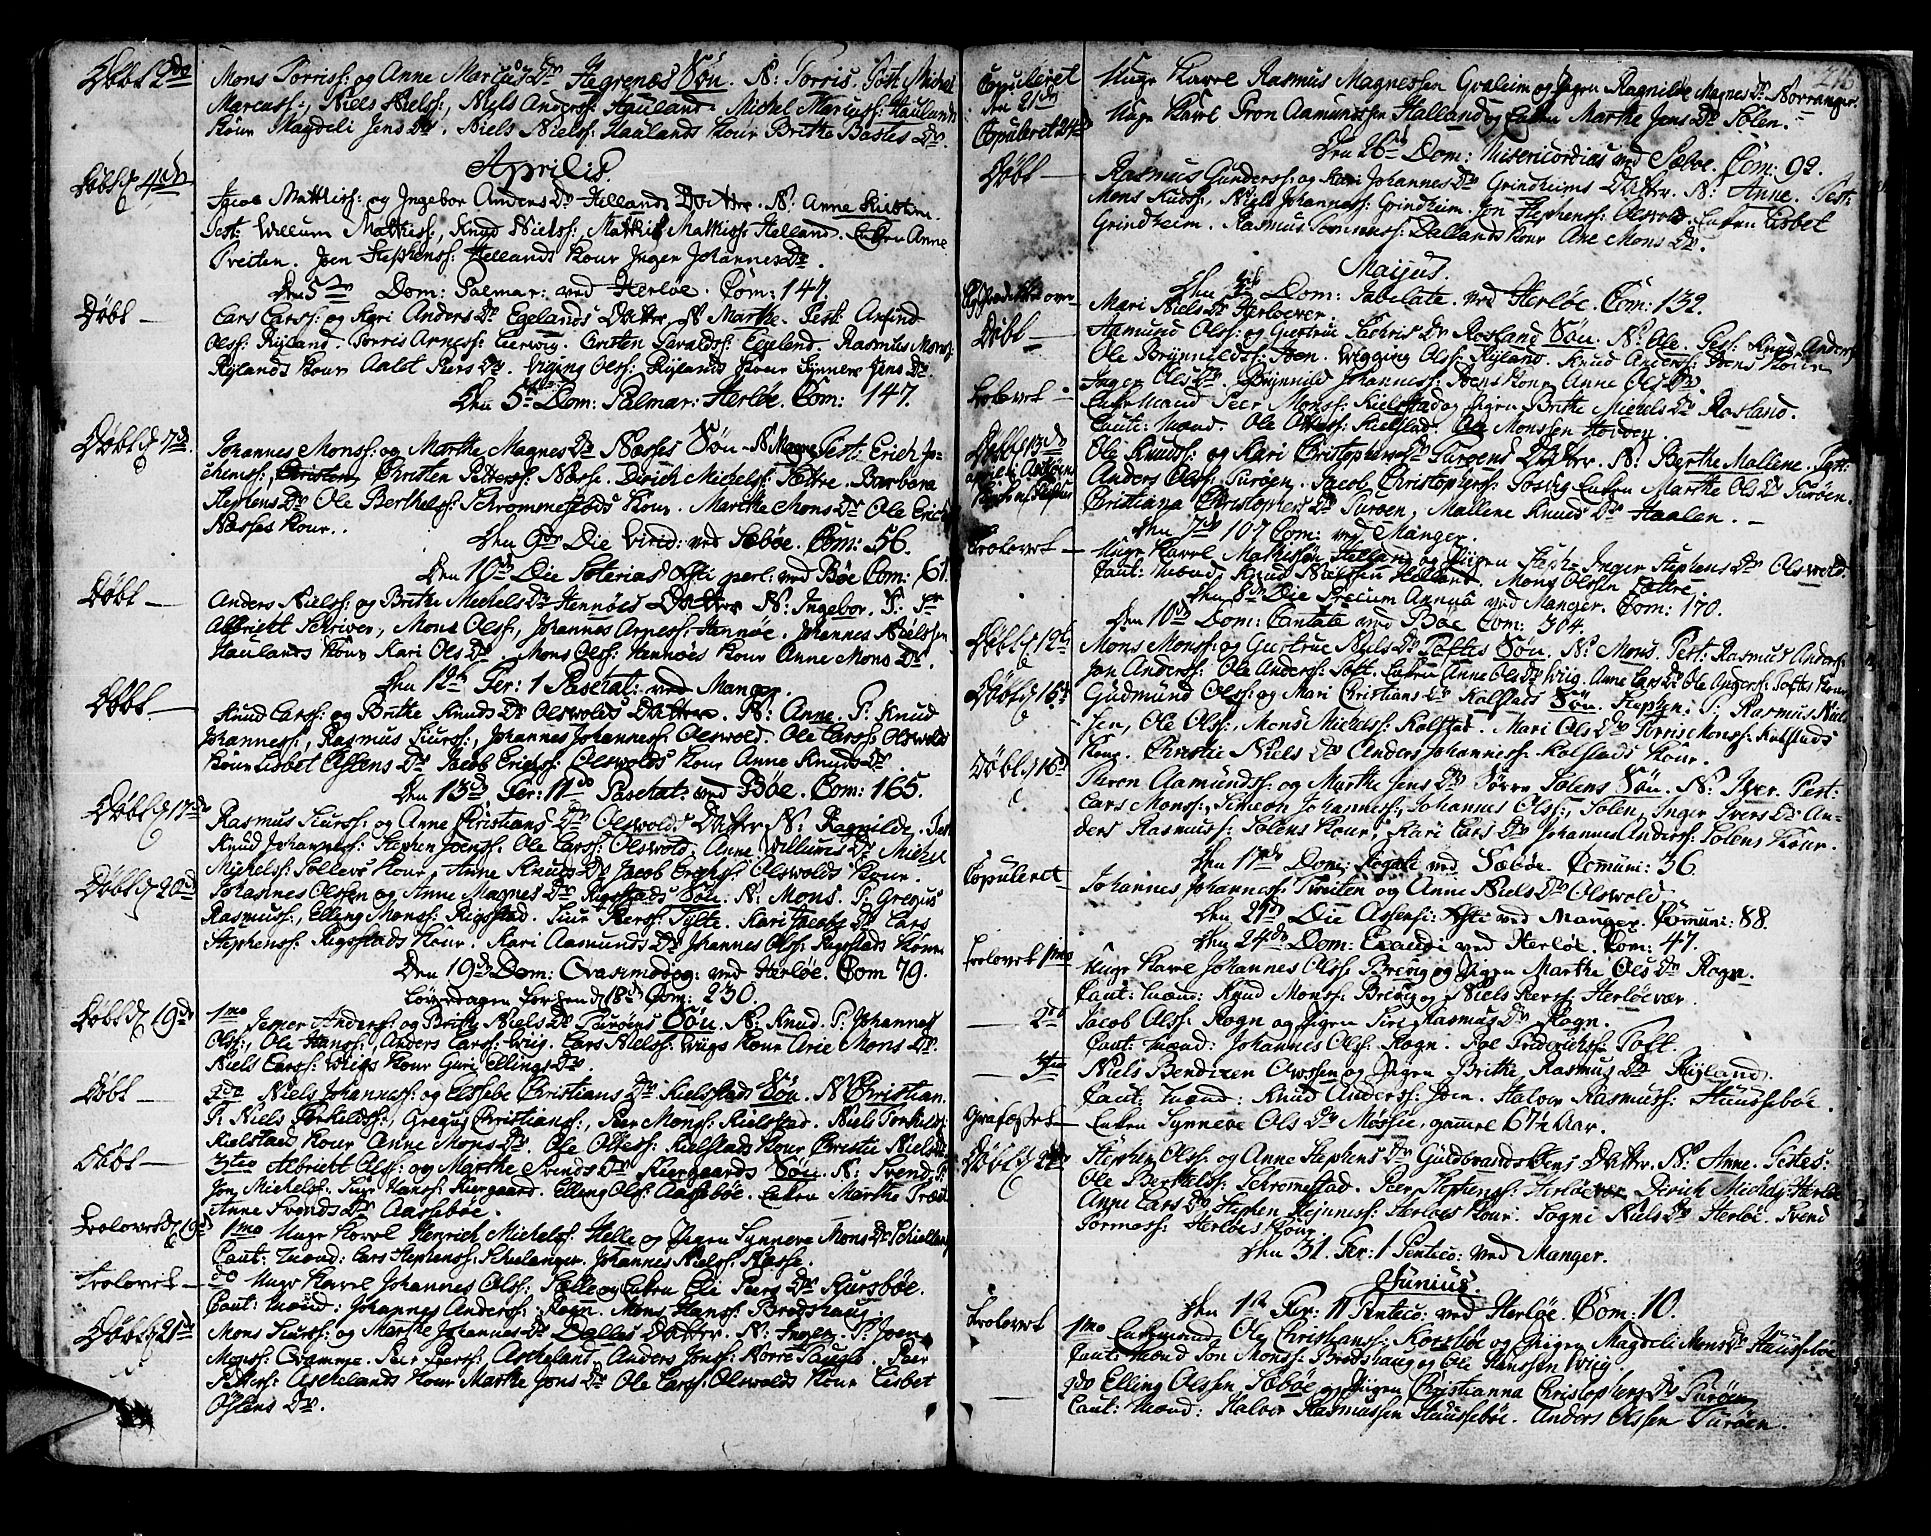 Døbt 2de Mons Torriss: og Anne Marcus Dr Hegrenæs Søn. N: Torris. Test: Michel
Marcuss:, Niels Nielss:, Niels Anderss: Hauland. Michel Marcuss: Haulands
Kone Magdeli Jens Dr. Niels Nielss: Haulands Kone Brithe Bastes Dr.
Aprilis.
Døbt d 4de Jacob Matthiss: og Ingebor Anders Dr Hellands Datter. N: Anne
Test: Willum Mathiess, Knud Nielss:, Matthis Mathiss: Helland. Enken Anne
Treiten. Joen Stephenss: Hellands Kone Inger Johannes Dr.
Den 5te Dom: Palmar: ved Herløe. Com: 147
Døbt — Lars Larss: og Kari Anders Dr Egelands Datter N: Marthe. Test: Amund
Olss: Rÿland. Torris Arness: Lerwiig. Carsten Haraldss: Egeland. Rasmus Monss:
Rÿlands Kone Aalet Peers Dr. Viging Olss: Rÿlands Kone Synnev Jens Dr.
Den 5te Dom: Palmar: Herløe. Com: 147.
Døbt d 7de Johannes Monss: og Marthe Magnes Dr Næsses Søn. N: Magne Test: Erich Jo-
chimss:, Christen Petterss: Næsse. Dirich Michelss: Sættre. Barbara
Stephens Dr. Ole Berthelss: Schrommestads Kone. Marthe Mons Dr Ole Erichss:
Næsses Kone.
Den 9de Die Virid: ved Sæbøe. Com: 56.
Den 10de Die Soterias Xsti perl: ved Bøe Com: 161.
Døbt — Anders Nielss: og Brithe Michels Dr Hennøes Datter N: Ingebor. T: Sr
Albrictt Scriver, Mons Olss:, Johannes Arness: Hannøe. Johannes Nielssen
Haulands Kone Kari Ols Dr. Mons Olss: Hennøes Kone Anne Mons Dr.
Den 12te Fer: 1 Paschat: ved Manger.
Døbt — Knud Larss: og Brithe Knuds Dr Olswolds Datter. N: Anne. T: Knud
Johanness:, Rasmus Siurss:, Johannes Johanness: Olswold. Ole Larss: Olswolds
Kone Lisbet Østens Dr Jacob Erichss: Olswolds Kone Anne Knuds Dr.
Den 13de Fer: 11de Paschat: ved Bøe. Com: 165.
Døbt d 17de Rasmus Siurss: og Anne Christians Dr Olswolds Datter N: Ragnilde. Test:
Knud Johanness: Stephen Joenss: Ole Larss: Olswold. Anne Willums Dr Michel
Michelss: Solleves Kone, Anne Knuds Dr Jacob Erichss: Olswolds Kone.
Døbt d 20de Johannes Olssen og Anne Magnes Dr Rigstads Søn. N: Mons. T: Gregus
Rasmuss:, Elling Monss: Rigstad. Siur Peerss: Tÿlte. Kari Jacobs Dr Lars
Stephenss: Rigstads Kone. Kari Aamunds Dr Johannes Olss: Rigstads Kone
Den 19de Dom: Qvasimodog: ved Herløe. Com 79.
Løverdagen forhen d 18de Com: 230.
Døbt d 19de 1mo Jemer Anderss: og Brithe Niels Dr Turøens Søn. N: Knud. T: Johannes
Olss:, Ole Hanss: Anders Larss: Wiig. Lars Nielss: Wiigs Kone Arie Mons Dr.
Niels Larss: Wiigs Kone Guri Ellings Dr.
Døbt 2do Niels Johanness: og Elsebe Christians Dr Kielstads Søn. N: Christian.
T: Niels Torkeldss:, Gregus Christianss:, Peer Monss: Kielstad. Niels Torkeldss:
Kielstads Kone Anne Mons Dr. Ole Olss: Kielstads Kone Christie Niels Dr
Døbt — 3tio Albrictt Olss: og Marthe Svends Dr Kiergaards Søn. N: Svend. T:
Jon Michelss: Siur Hanss: Kiergaard. Elling Olss: Aassebøe. Enken Marthe
Anne Svends Dr Aassebøe.
Trolovet d 19de 1mo Unge Karl Henrich Michelss: Helle og Pigen Synneve Mons Dr
Caut: Mænd: Lars Stephenss: Skielanger. Johannes Nielss: Næsse.
Trolovet — 2do Unge Karl Johannes Olss: Sælle og Enken Eli Peers Dr Kursbøe.
Caut: Mænd: Johannes Anderss: Rogn. Mons Hanss: Brodshaug.
Døbt d 21de Mons Siurss: og Marthe Johannes Dr Dalles Datter. N: Inger. T: Joen
Monss: Qvamme. Peer Peerss: Askeland. Anders Jonss: Norre Tauglo. Peer
Petterss: Askelands Kone Marthe Jons Dr Ole Larss: Olswolds Kone Lisbet
Østens Dr.
Copuleret den 21de Unge Karl Rasmus Magnessen Gvaleim og Pigen Ragnilde Magnes Dr Norranger.
Copuleret 24de Unge Karl Tron Aamundssen Halland og Enken Marthe Jens Dr Solen.
Den 26de Dom: Misericordias ved Sæbøe. Com: 92.
Døbt — Rasmus Gunderss: og Kari Johannes Dr Grindheims Datter. N: Anne. Test:
Mons Knudss:, Niels Johanness: Grindheim. Jon Stephenss: Olswold. Enken Lisbet
Grindheim. Rasmus Tormoss: Dallands Kone Ane Mons Dr.
Maijus.
Den 3de Dom: Jubilate. ved Herløe. Com: 132.
Mari Niels Dr Herløever.
Døbt — Aamund Olss: og Giertrue Zachris Dr Rosland Søn. N: Ole. Test: Knud Anderss:
Ole Brÿnnildss: Joen. Wigging Olss: Rÿland. Knud Anderss: Joens Kone
Inger Ols Dr. Brÿnnild Johanness: Joens Kone Anne Ols Dr.
Trolovet — Enkemand Peer Monss: Kielstad og Pigen Brithe Michels Dr Rosland.
Caut: Mænd. Ole Olss: Kielstad. Ole Monssen Horden.
Døbt d 13de Ole Knudss: og Kari Christophers Dr Turøens Datter. N: Berthe Mallene. Test:
Anders Olss: Turøen. Jacob Christopherss: Enken Marthe Ols Dr Turøen.
Christiana Christophers Dr Turøen, Mallene Knuds Dr Haalen. —
Den 7de 107 Com: ved Manger.
Trolovet — Unge Karl Mathissen Helland og Pigen Inger Stephens Dr Olswold.
Caut: Mænd. Knud Nielssen Helland. Mons Olssen Sættre.
Den 8de Die Precum Annuâ ved Manger. Com: 170.
Den 10de Dom: Cantate ved Bøe Com: 304.
Døbt d 12te Mons Monss: og Giertrue Niels Dr Tofts Søn. N: Mons. Test: Rasmus Anderss:
Jon Anderss: Ole Anderss: Toft. Enken Anne Ols Dr Wiig. Anne Lars Dr Ole Anderss: Tofts Kone
Døbt d 16de Gudmund Olss: og Mari Christians Dr Kolstads Søn. Stephen: T: Rasmus Niel-
sen, Ole Olss:, Mons Michelss: Kolstad. Mari Ols Dr Torris Monss: Kolstads
Kone. Christie Niels Dr Anders Johanness: Kolstads Kone.
Døbt d 16de Turon Aamundss: og Marthe Jens Dr Norre Solens Søn. N: Iver. Test:
Lars Monss:, Simeon Johanness:, Johannes Olss:, Solen, Inger Ivers Dr An-
ders Rasmuss: Solens Kone, Kari Lars Dr Johannes Anderss: Solens Kone.
Den 17de Dom: Rogate ved Sæbøe. Comuni: 36.
Copuleret — Johannes Johanness: Treiten og Anne Niels Dr Olswold
Den 21de Die Assensi: Xsti ved Manger. Comuni: 88.
Den 24de Dom: Exaudi ved Herløe. Com: 47.
Trolovet 1mo Unge Karl Johannes Olss: Breviig og Pigen Marthe Ols Dr Rogn.
Caut: Mænd: Knud Monss: Breviig og Niels Peerss: Herløevær.
— 2do Jacob Olss: Rogn og Pigen Siri Rasmus Dr Rogn.
Caut: Mænd: Johannes Olss: Rogn. Poe Friderichss: Toft.
— 3tio Niels Bendixen og Pigen Brithe Rasmus Dr Rÿgland.
Caut: Mænd: Knud Anderss: Joen. Halvor Rasmuss: Hussebøe.
Grafæstet — Enken Synneve Ols Dr Møssie, gamel 67½ Aar.
Døbt d Stephen Olss: og Anne Stephens Dr Guldbrandsøens Datter. N: Anne. Testes:
Ole Berthelss: Schromestad. Peer Stephenss: Herløe Dirich Michelss: Herløe
Anne Lars Dr Stephen Heinness: Herløes Kone. Sogni Niels Dr Herløe. Svend
Tormoss: Herløes Kone.
Den 31. Fer: 1 Pentico: ved Manger.
Junius.
Den 1ste Fer: 11 Pentico: ved Herløe. Com: 10.
Trolovet 1mo Enkemand Ole Christianss: Korsbøe og Pigen Magdeli Mons Dr Hussebøe
Caut: Mænd Jon Monss: Brodshaug og Ole Hanssen Wiig.
— 2do Elling Olssen Sæbøe og Pigen Christianna Christophers Dr Turøen
Caut: Mænd: Halvor Rasmussen Hussebøe. Anders Olssen Turøen.